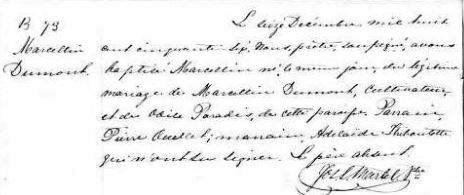 B 73
Marcellin
Dumont.
Le seize Décembre mil huit
cent cinquante six, Nous, prêtre, soussigné, avons
baptisé Marcellin né le même jour, du légitime
mariage de Marcellin Dumont, Cultivateur
et de Odile Paradis, de cette paroisse. Parrain,
Pierre Ouellet; marraine, Adelaide Thiboutotte
qui n'ont su signer. Le père absent.
Jos. C. Martel Ptre